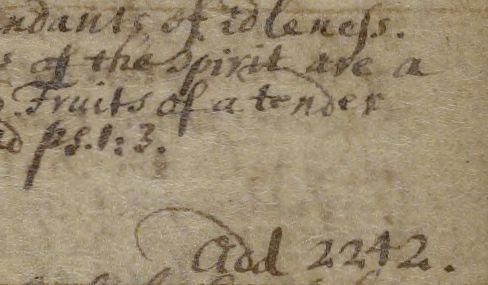 ndants of idleness.
s of the Spirit are a
Fruits of a tender
ps.1:3.
Add 2242.